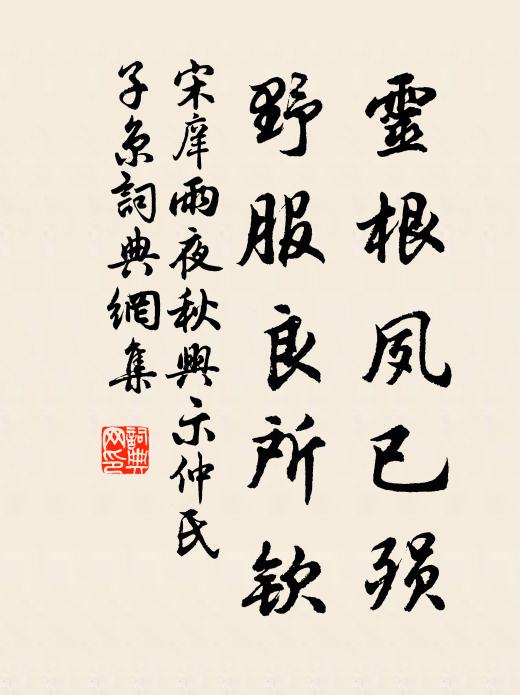 靈根夙已殞
野服良所欽
宋庠雨夜秋興示仲氏
子京詞典網集
詞典
网印